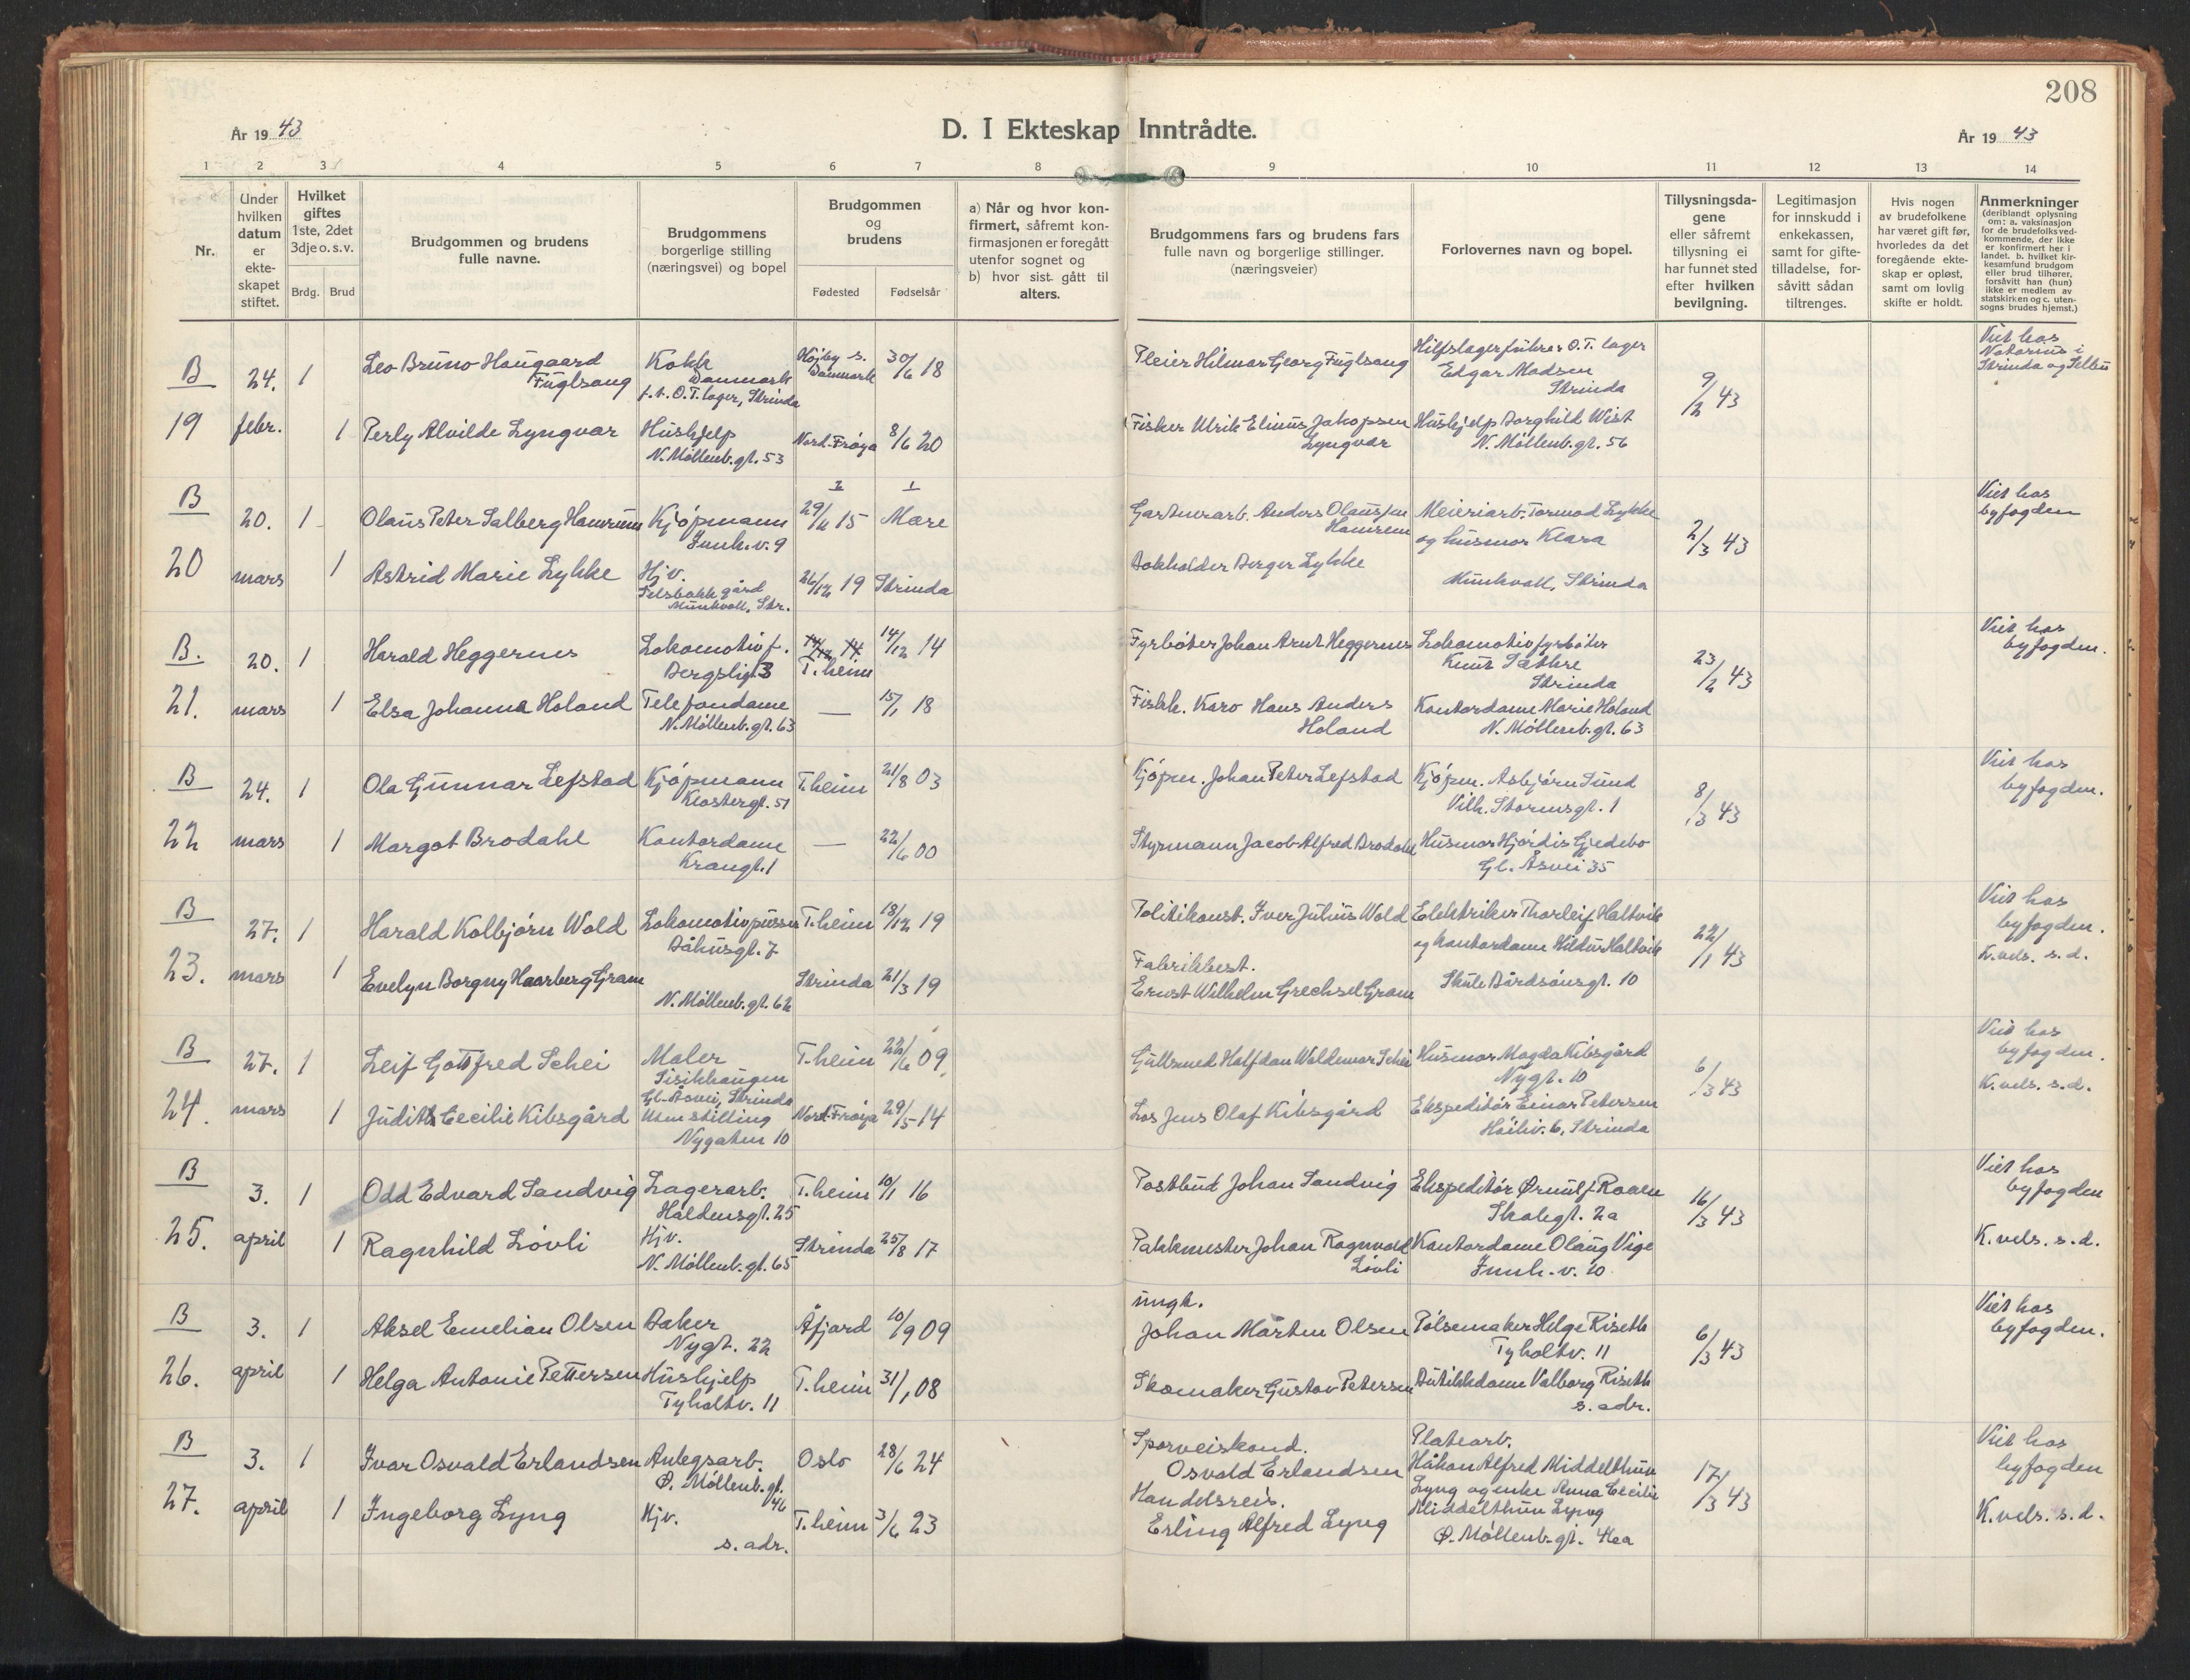 208
År 19 43
D. I Ekteskap Inntrådte.
År 19 43
1 2 3 4 5 6 7 8 9 10 11 12 13 14
Nr.
Under hvilken datum er ekte- skapet stiftet.
Hvilket giftes 1ste, 2det 3dje o. s. v.
Brdg. Brud
Brudgommen og brudens fulle navne.
Brudgommens borgerlige stilling (næringsvei) og bopel
Brudgommen og brudens
Fødested Fødselsår
a) Når og hvor kon-
firmert, såfremt kon-
firmasjonen er foregått
utenfor sognet og
b) hvor sist gått til
alters.
Brudgommens fars og brudens fars
fulle navn og borgerlige stillinger.
(næringsveier)
Forlovernes navn og bopel.
Tillysningsda-
gene
eller såfremt
tillysning ei
har funnet sted
efter hvilken
bevilgning.
Legitimasjon
for innskudd i
enkekassen,
samt for gifte-
tilladelse, for-
såvitt sådan
tiltrenges.
Hvis nogen
av brudefolkene
har været gift før,
hvorledes da det
foregående ekte-
skap er opløst,
samt om lovlig
skifte er holdt.
Anmerkninger
(deriblandt oplysning
om: a. vaksinasjon
for de brudefolks ved-
kommende, der ikke
er konfirmert her i
landet. b. hvilket kir-
kesamfund brudgom
eller brud tilhører,
forsåvitt han (hun)
ikke er medlem av
statskirken og c. uten-
sogns brudes hjemst.)
B 24. 1 Leo Bruno Haugaard Fuglsang
Kokk Danmark
f.t. O.T. lager, Strinda
Højby s. Danmark 30/6 18
Pleier Hilmar Georg Fuglsang
Hilfslagerführer O.T. lager
Edgar Madsen
Strinda
9/2 43
Viet hos
Notarius i
Strinda og Selbu
19 febr. 1 Perly Alvilde Lyngvær
Hushjelp
N. Möllenb. gt. 53
Nord-Frøya 8/6 20
Fisker Ulrik Elinus Jakopsen
Lyngvær
Hushjelp Borghild Wist
N. Möllenb. gt. 56
B 20. 1 Olaus Peter Salberg Hamrum
Kjöpmann
Innh. v. 9
2 1
29/11 15 Mære
Gartnerarb. Anders Olaussen
Hamrem
Meieriarb. Tormod Lykke
og husmor Klara
2/3 43
Viet hos
byfogden
20 mars 1 Astrid Marie Lykke
Hjv.
gård
Munkvoll, Str.
26/12 19 Strinda
Bokholder Berger Lykke
Munkvoll, Strinda
B. 20. 1 Harald Heggernes
Lokomotivf.
Bergsligt. 3
T.heim 14/12 14
Fyrbøter Johan Arnt Heggernes
Lokomotivfyrbøter
Knut Sæthre
Strinda
23/2 43
Viet hos
byfogden.
21. mars 1 Elsa Johanna Holand
Telefondame
N. Möllenb. gt. 63
— 15/1 18
Fiskh. Karo Hans Anders
Holand
Kontordame Marie Holand
N. Möllenb. gt. 63
B 24. 1 Ola Gunnar Lefstad
Kjöpmann
Klostergt. 51
T.heim 21/8 03
Kjöpm. Johan Peter Lefstad
Kjöpm. Asbjörn Sund
Vilh. Stormsgt. 1
8/3 43
Viet hos
byfogden.
22 mars 1 Margot Brodahl
Kontordame
Krangt. 1
— 22/6 00
Styrmann Jacob Alfred Brodahl
Husmor Hjördis Gjedebo
Gl. Åsvei 35
B 27. 1 Harald Kolbjörn Wold
Lokomotivpusser
Båhusgt. 7
T.heim 18/12 19
Politikonst. Iver Julius Wold
Elektriker Thorleif Haltvik
og kontordame Hildur Haltvik
22/1 43
Viet hos
byfogden.
K.vels. s.d.
23. mars 1 Evelyn Borgny Haarberg Gram
N. Möllenb. gt. 62
Strinda 21/3 19
Fabrikbest.
Ernst Wilhelm Grechsel Gram
Skule Bårdsönsgt. 10
B 27. 1 Leif Gottfred Schei
Maler
Sisikhaugen
Gl. Åsvei, Strinda
T.heim 22/6 09
Gullsmed Halfdan Waldemar Schei
Husmor Magda Kibsgård
Nygt. 10
6/3 43
Viet hos
byfogden.
K.vels. s.d.
24. mars 1 Judith Cecilie Kibsgård
Uten stilling
Nygaten 10
Nord-Frøya 29/5 14
Los Jens Olaf Kibsgård
Ekspeditör Einar Petersen
Höiliv. 6, Strinda
B 3. 1 Odd Edvard Sandvig
Lagerarb.
Haldensgt. 25
T.heim 10/1 16
Postbud Johan Sandvig
Ekspeditör Ørnulf Raaen
Skolegt. 2a
16/3 43
Viet hos
byfogden
25. april 1 Ragnhild Lövli
Hjv.
N. Möllenb. gt. 65
Strinda 25/8 17
Pakkmester Johan Ragnvald
Lövli
Kontordame Olaug Vige
Innh. v. 20
K.vels. s.d.
B 3. 1 Aksel Emelian Olsen
Baker
Nygt. 22
Åfjord 10/9 09
ungk.
Johan Mårten Olsen
Pölsemaker Helge Riseth
Tyholtv. 11
6/3 43
Viet hos
byfogden.
26. april 1 Helga Antonie Pettersen
Hushjelp
Tyholtv. 11
T.heim 31/1 08
Skomaker Gustav Petersen
Butikkdame Valborg Riseth
s. adr.
B 3. 1 Ivar Osvald Erlandsen
Anlegsarb.
Ø. Möllenb. gt. 46
Oslo 28/6 24
Sporveiskond.
Osvald Erlandsen
Platearb.
Håkon Alfred Middelthun
Lyng og enke Anna Cecilie
Middelthun Lyng
Ø. Möllenb. gt.
17/3 43
Viet hos
byfogden
27. april 1 Ingeborg Lyng
Hjv.
s. adr.
T.heim 3/6 23
Handelsreis.
Erling Alfred Lyng
K.vels. s.d.